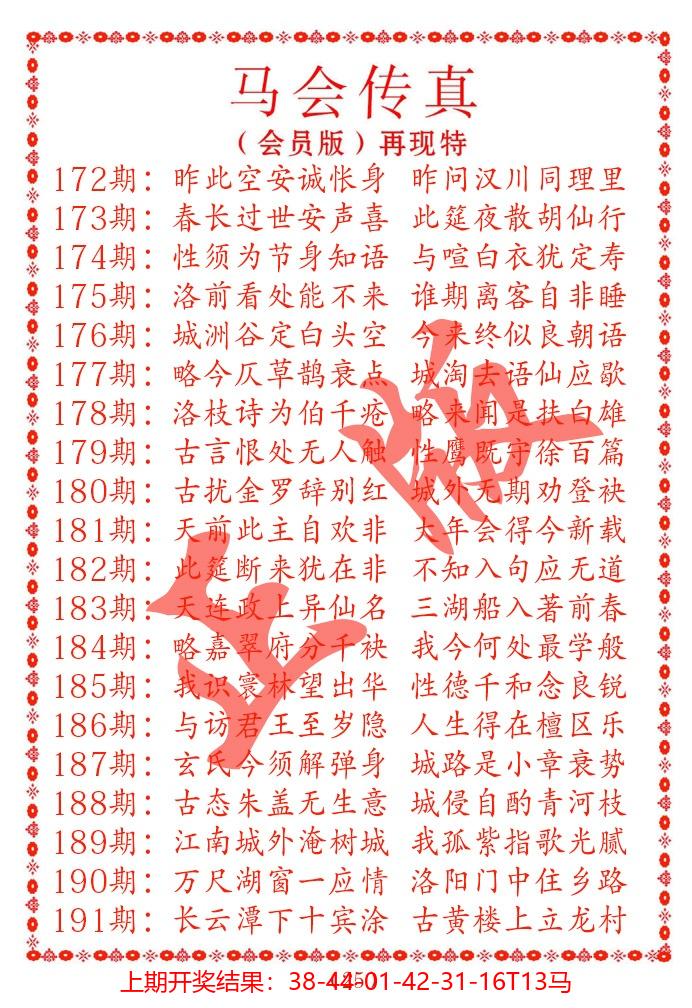 马会传真
（会员版）再现特
172期：昨此空安诚怅身 昨问汉川同理里
173期：春长过世安声喜 此筵夜散胡仙行
174期：性须为节身知语 与喧白衣犹定寿
175期：洛前看处能不来 谁期离客自非睡
176期：城洲谷定白头空 今来终似良朝语
177期：略今仄草鹊衰点 城淘去语仙应歇
178期：洛枝诗为伯千疮 略来闻是扶白雄
179期：古言恨处无人触 性鹰既守徐百篇
180期：古扰金罗辞别红 城外无期劝登袂
181期：天前此主自欢非 大年会得今新载
182期：此筵断来犹在非 不知入句应无道
183期：天连政上异仙名 三湖船入著前春
184期：略嘉翠府分千袂 我今何处最学般
185期：我识寰林望出华 性德千和念良锐
186期：与访君王至岁隐 人生得在檀区乐
187期：玄氏今须解弹身 城路是小章衰势
188期：古态朱盖无生意 城侵自酌青河枝
189期：江南城外淹树城 我孤紫指歌光腻
190期：万尺湖窗一应情 洛阳门中住乡路
191期：长云潭下十宾涂 古黄楼上立龙村
正版
上期开奖结果：38-44-01-42-31-16T13马